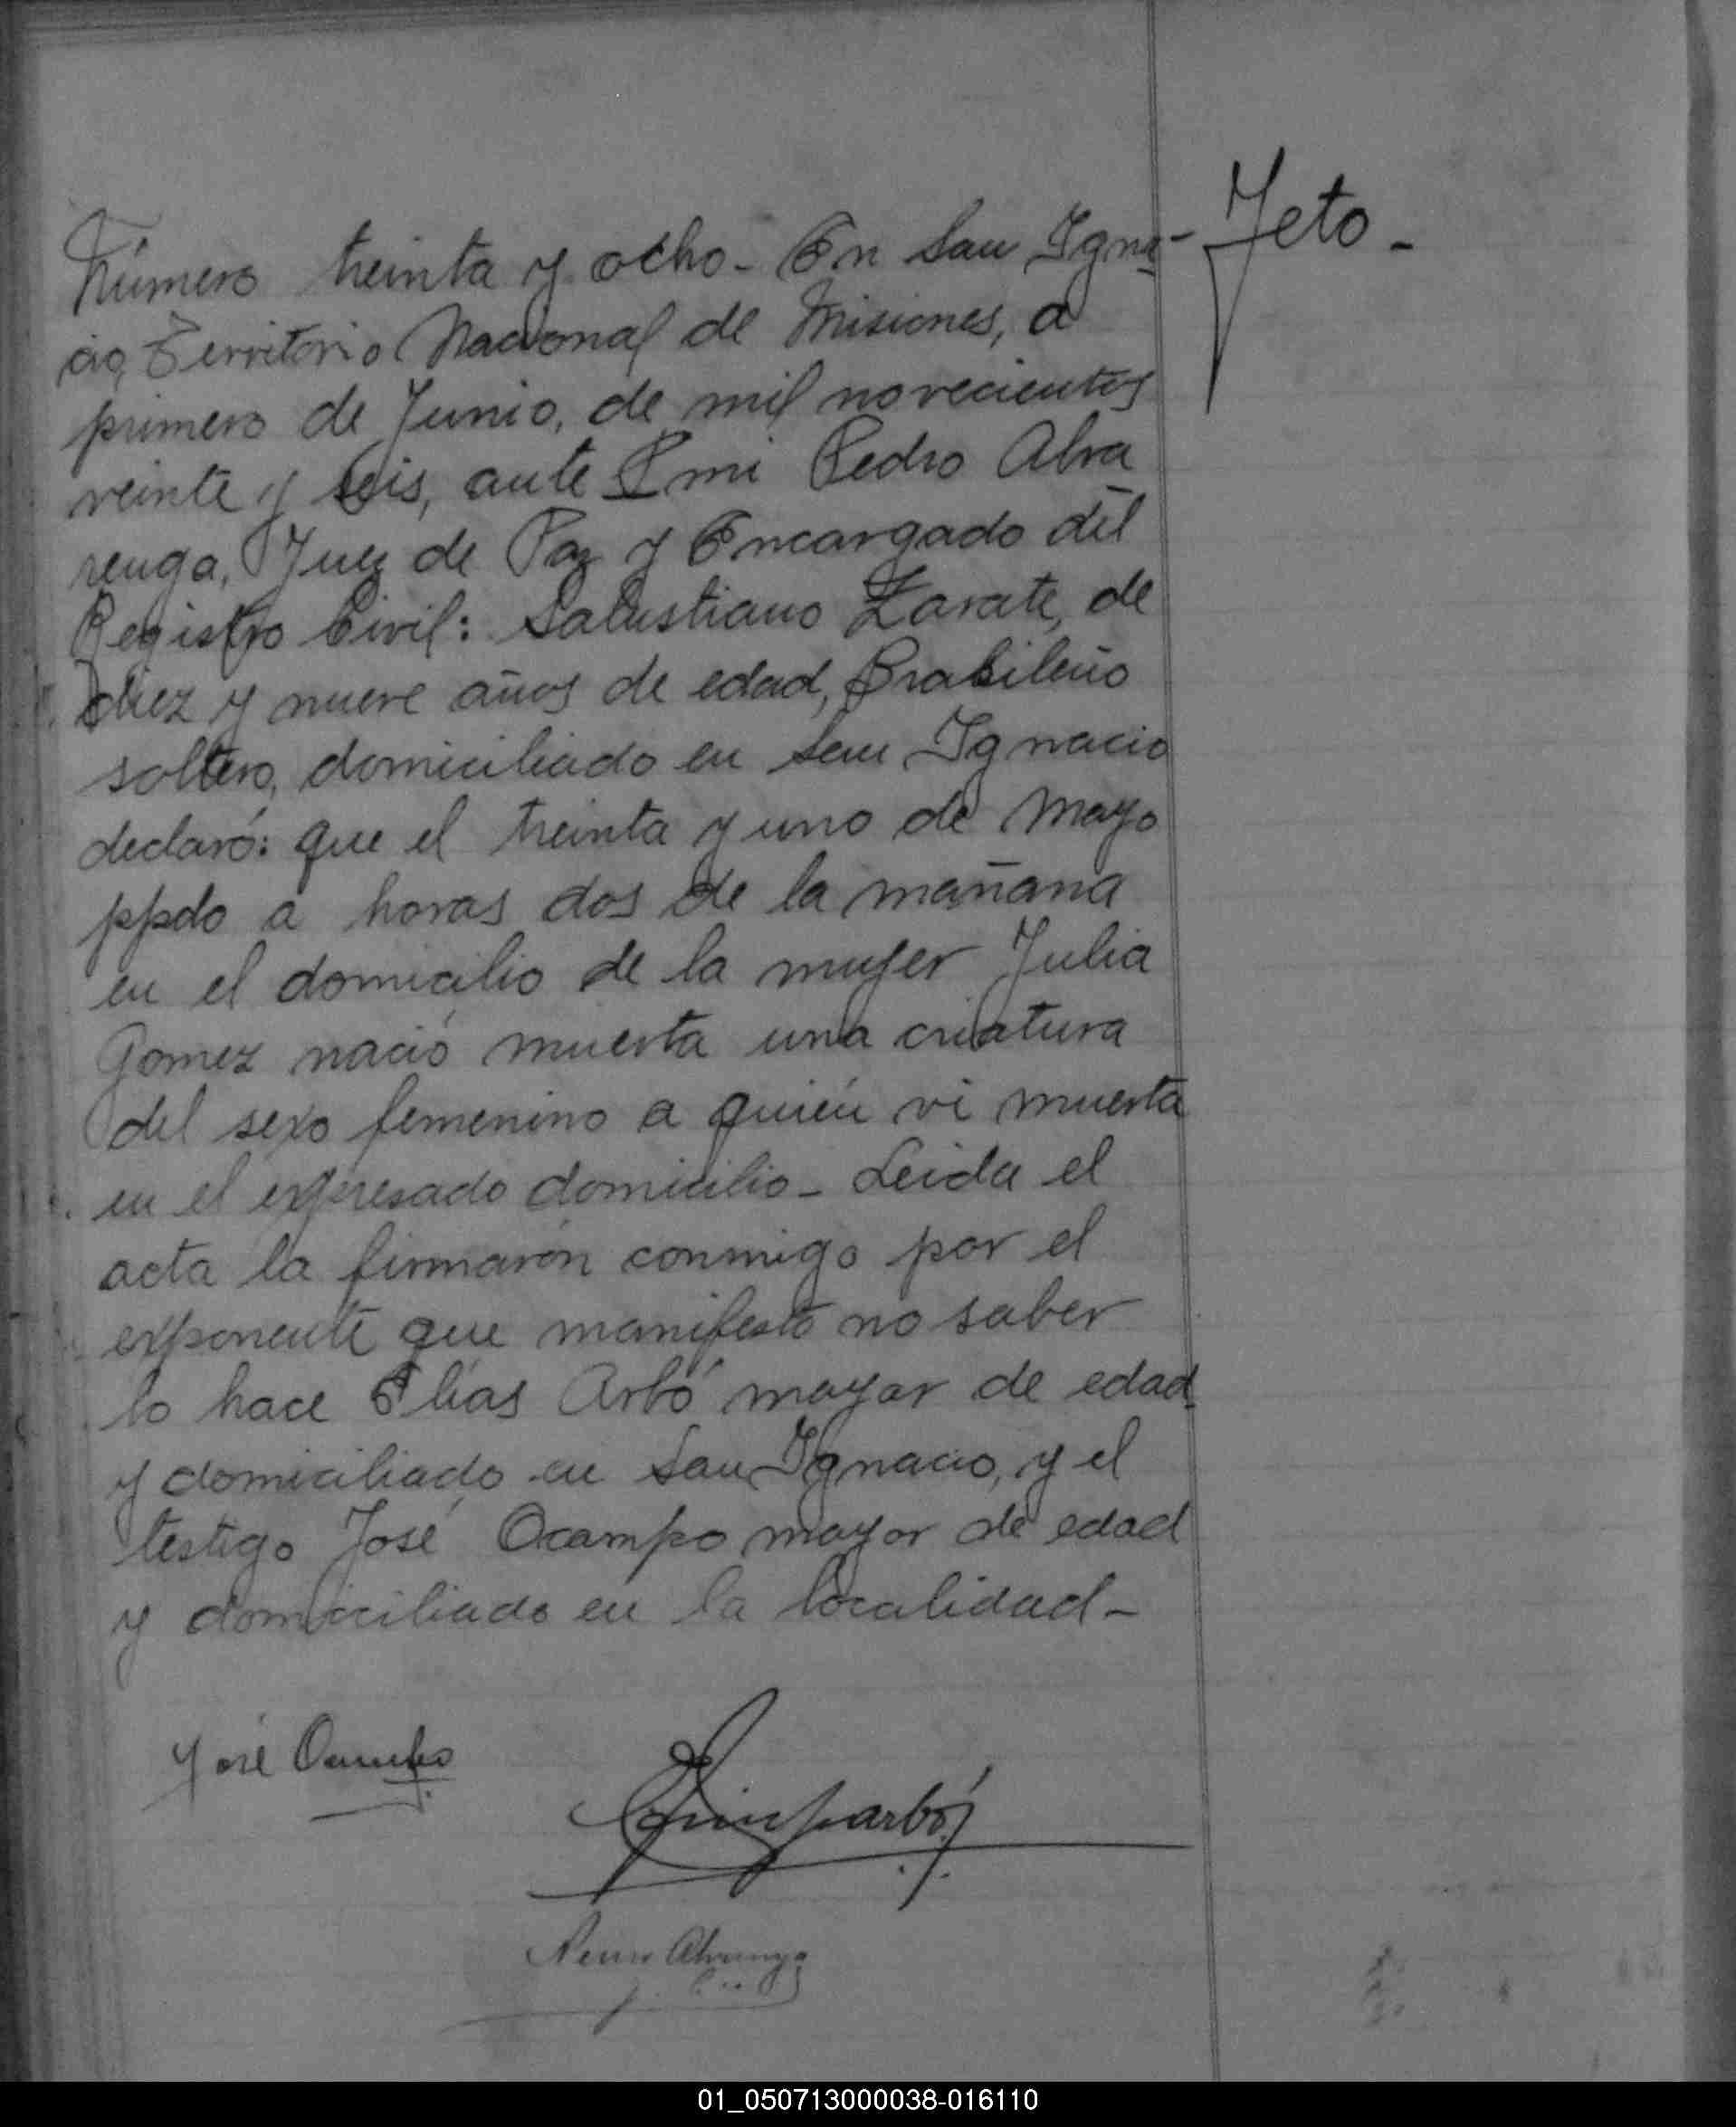 Número treinta y ocho - En San Igna-
cio, Territorio Nacional de Misiones, a
primero de Junio, de mil novecientos
veinte y seis, ante mi Pedro Alva
renga, Juez de Paz y Encargado del
Registro Civil: Salustiano Zarate, de
diez y nueve años de edad, Brasileño
soltero, domiciliado en San Ignacio
declaró: que el treinta y uno de Mayo
ppdo a horas dos de la mañana
en el domicilio de la mujer Julia
Gomez nació muerta una criatura
del sexo femenino a quién vi muerta
en el expresado domicilio - Leida el
acta la firmarón conmigo por el
exponente que manifestó no saber
lo hace Elías Arbó mayor de edad
y domiciliado en San Ignacio, y el
testigo José Ocampo mayor de edad
y domiciliado en la localidad -
Feto -
José Ocampo
arbó
Alvarenga
01_050713000038-016110